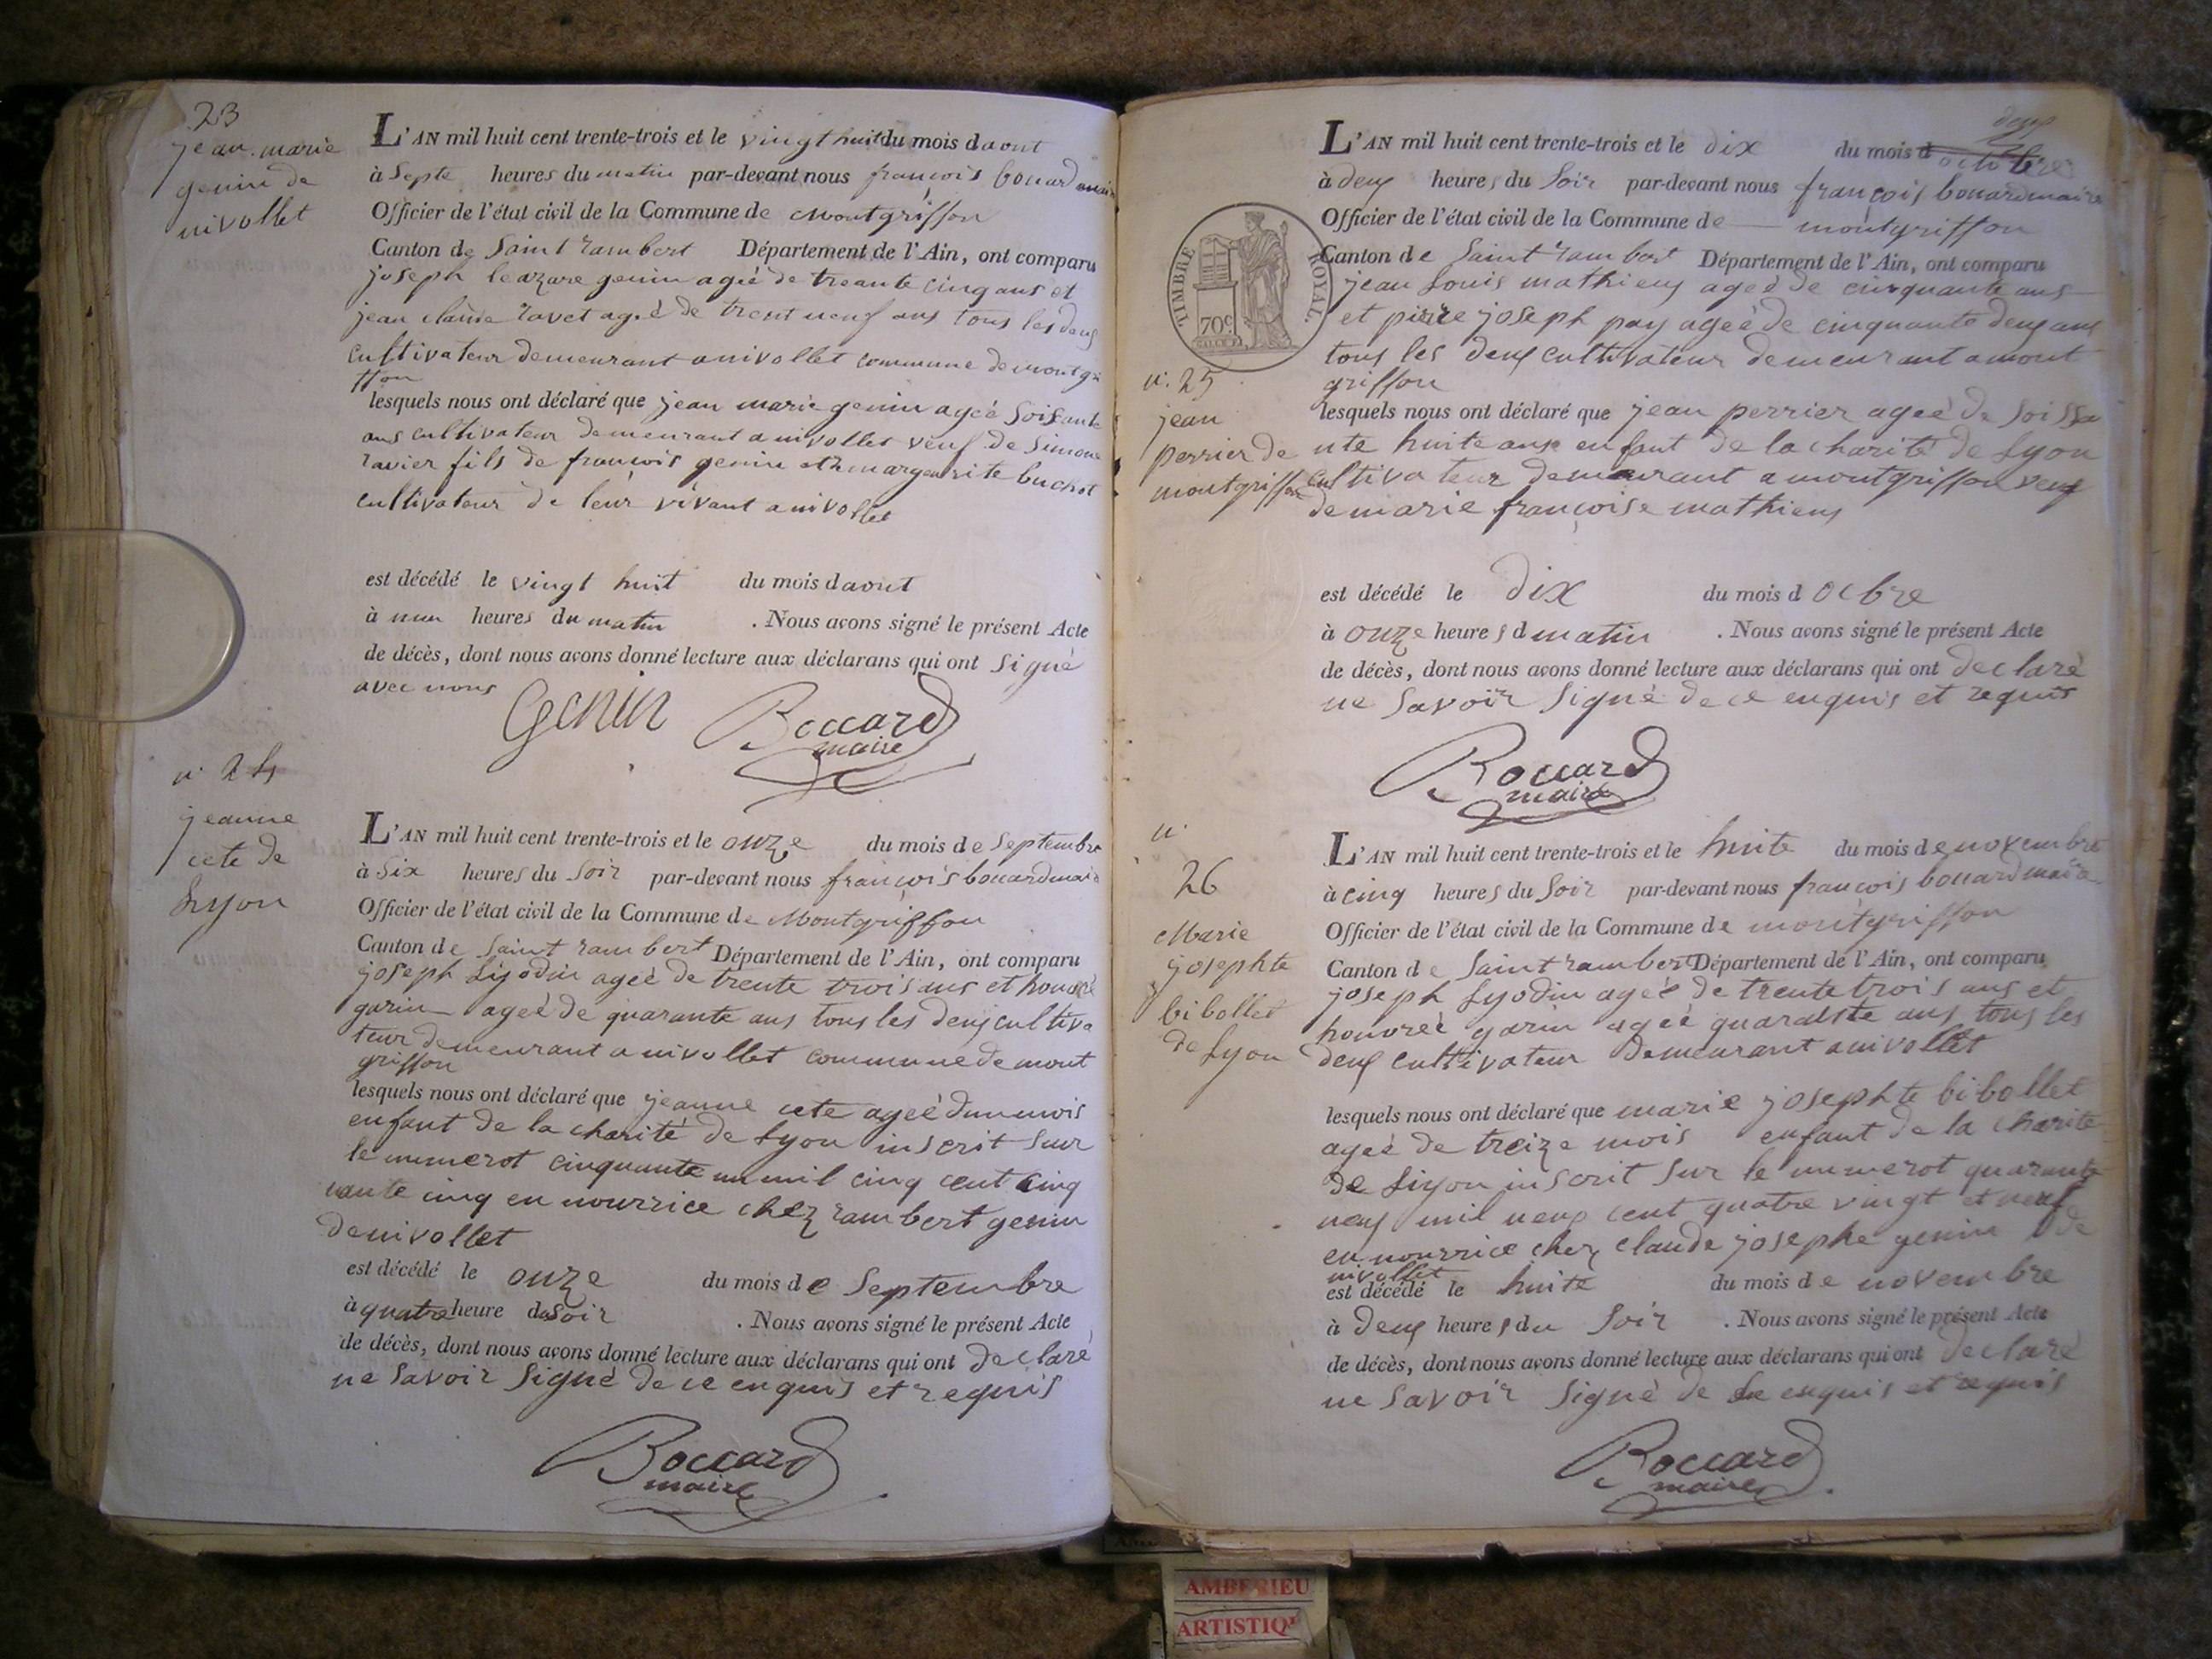 23
jean marie
genin de
nivollet
L'AN mil huit cent trente-trois et le vingt huit du mois d aout
à septe heures du matin par-devant nous françois bouard maire
Officier de l'état civil de la Commune de Montgriffon
Canton de Saint rambert Département de l'Ain, ont comparu
joseph leazare genin ageé de treante cinq ans et
jean claude ravet ageé de trent neuf ans tous les deux
cultivateur demeurant a nivollet commune de montgri
ffon
lesquels nous ont déclaré que jean marie genin ageé soisante
ans cultivateur demeurant a nivollet veuf de Simone
ravier fils de françois genin et margeurite buchot
cultivateur de leur vivant a nivollet
est décédé le vingt huit du mois d aout
à heures du matin . Nous avons signé le présent Acte
de décès, dont nous avons donné lecture aux déclarans qui ont signé
avec nous
Genin Boccard
maire
n. 24
jeanne
cete de
Lyon
L'AN mil huit cent trente-trois et le onze du mois de Septembre
à six heures du soir par-devant nous françois bouard maire
Officier de l'état civil de la Commune de Montgriffon
Canton de Saint rambert Département de l'Ain, ont comparu
joseph Liyodin ageé de trente trois ans et honoré
garin ageé de quarante ans tous les deux cultiva
teur demeurant a nivollet commune de mont
griffon
lesquels nous ont déclaré que jeanne cete ageé d un mois
enfant de la charité de Lyon inscrit sur
le numerot cinquante un mil cinq cent cinq
uante cinq en nourrice chez rambert genin
de nivollet
est décédé le onze du mois de Septembre
à quatre heure du soir . Nous avons signé le présent Acte
de décès, dont nous avons donné lecture aux déclarans qui ont declaré
ne savoir signé de ce enquis et requis
Boccard
maire
L'AN mil huit cent trente-trois et le dix du mois d octobre
à deux heures du soir par-devant nous françois bouard maire
Officier de l'état civil de la Commune de montgriffon
Canton de Saint rambert Département de l'Ain, ont comparu
TIMBRE ROYAL
70c
jean Louis mathieux ageé de cinquante ans
et pierre joseph pay ageé de cinquante deux ans
tous les deux cultivateur demeurant a mont
griffon
n. 25
jean
perrier de
montgriffon
lesquels nous ont déclaré que jean perrier ageé de soissa
nte huite ans enfant de la charité de Lyon
cultivateur demeurant a montgriffon veuf
de marie françoise mathieux
est décédé le dix du mois d Octbre
à onze heures d matin . Nous avons signé le présent Acte
de décès, dont nous avons donné lecture aux déclarans qui ont declaré
ne savoir signé de ce enquis et requis
Boccard
maire
n.
26
Marie
josephte
bibollet
de Lyon
L'AN mil huit cent trente-trois et le huite du mois de novembre
à cinq heures du soir par-devant nous françois bouard maire
Officier de l'état civil de la Commune de montgriffon
Canton de Saint rambert Département de l'Ain, ont comparu
joseph Lyodin ageé de trente trois ans et
honoreé garin ageé quarante ans tous les
deux cultivateur demeurant a nivollet
lesquels nous ont déclaré que marie josephte bibollet
ageé de treize mois enfant de la charité
de Liyon inscrit sur le numerot quarante
neuf mil neuf cent quatre vingt et neuf
en nourrice chez claude josephe genin de
nivollet
est décédé le huite du mois de novembre
à deux heures du soir . Nous avons signé le présent Acte
de décès, dont nous avons donné lecture aux déclarans qui ont declaré
ne savoir signé de ce enquis et requis
Boccard
maire
AMBERIEU
ARTISTIQU